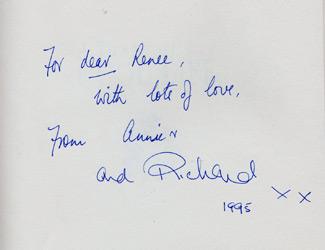 For dear Renee,
with lots of love,
From Annie x
and Richard
x x
1995